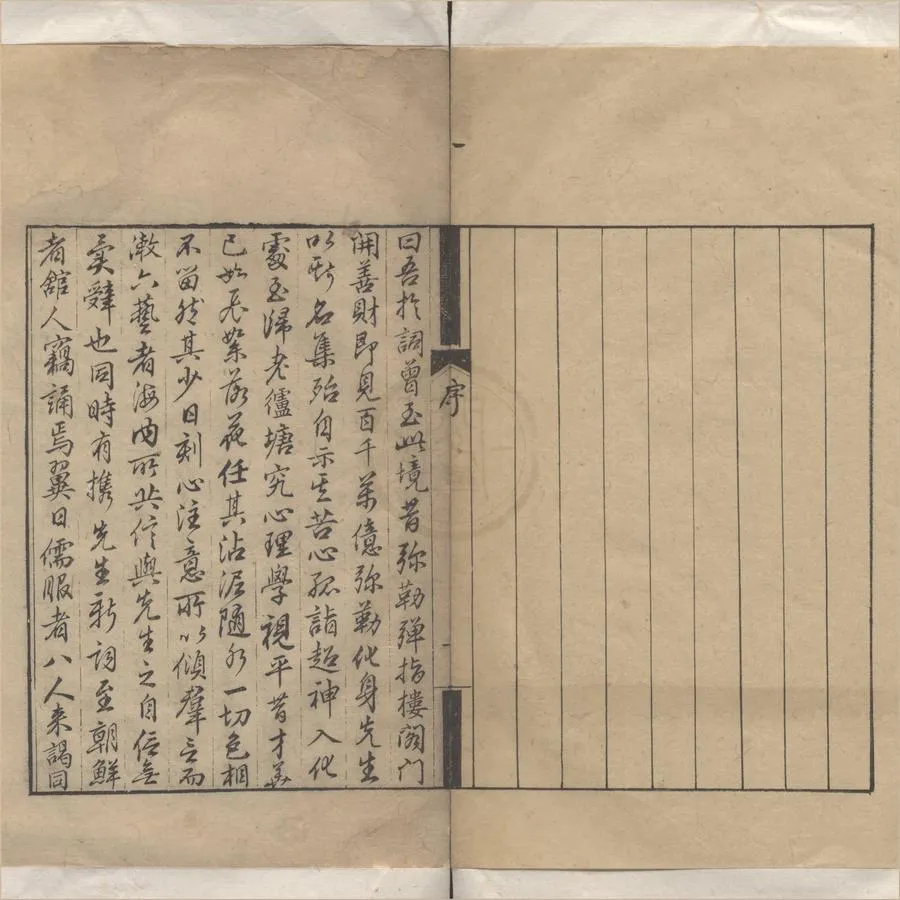 序
曰吾於詞曾至此境昔弥勒弹指樓阁门
開善財即見百千萬億弥勒化身先生
以斯名集殆自示其苦心孤詣超神入化
處至歸老塘究心理學視平昔才
已如飛絮落花任其沾泥隨水一切色相
不留然其少日刻心注意所以傾羣言而
漱六藝者海内所共信與先生之自信無
異辭也同時有携先生新詞至朝鮮
者舘人竊誦焉翼日儒服者八人来謁同